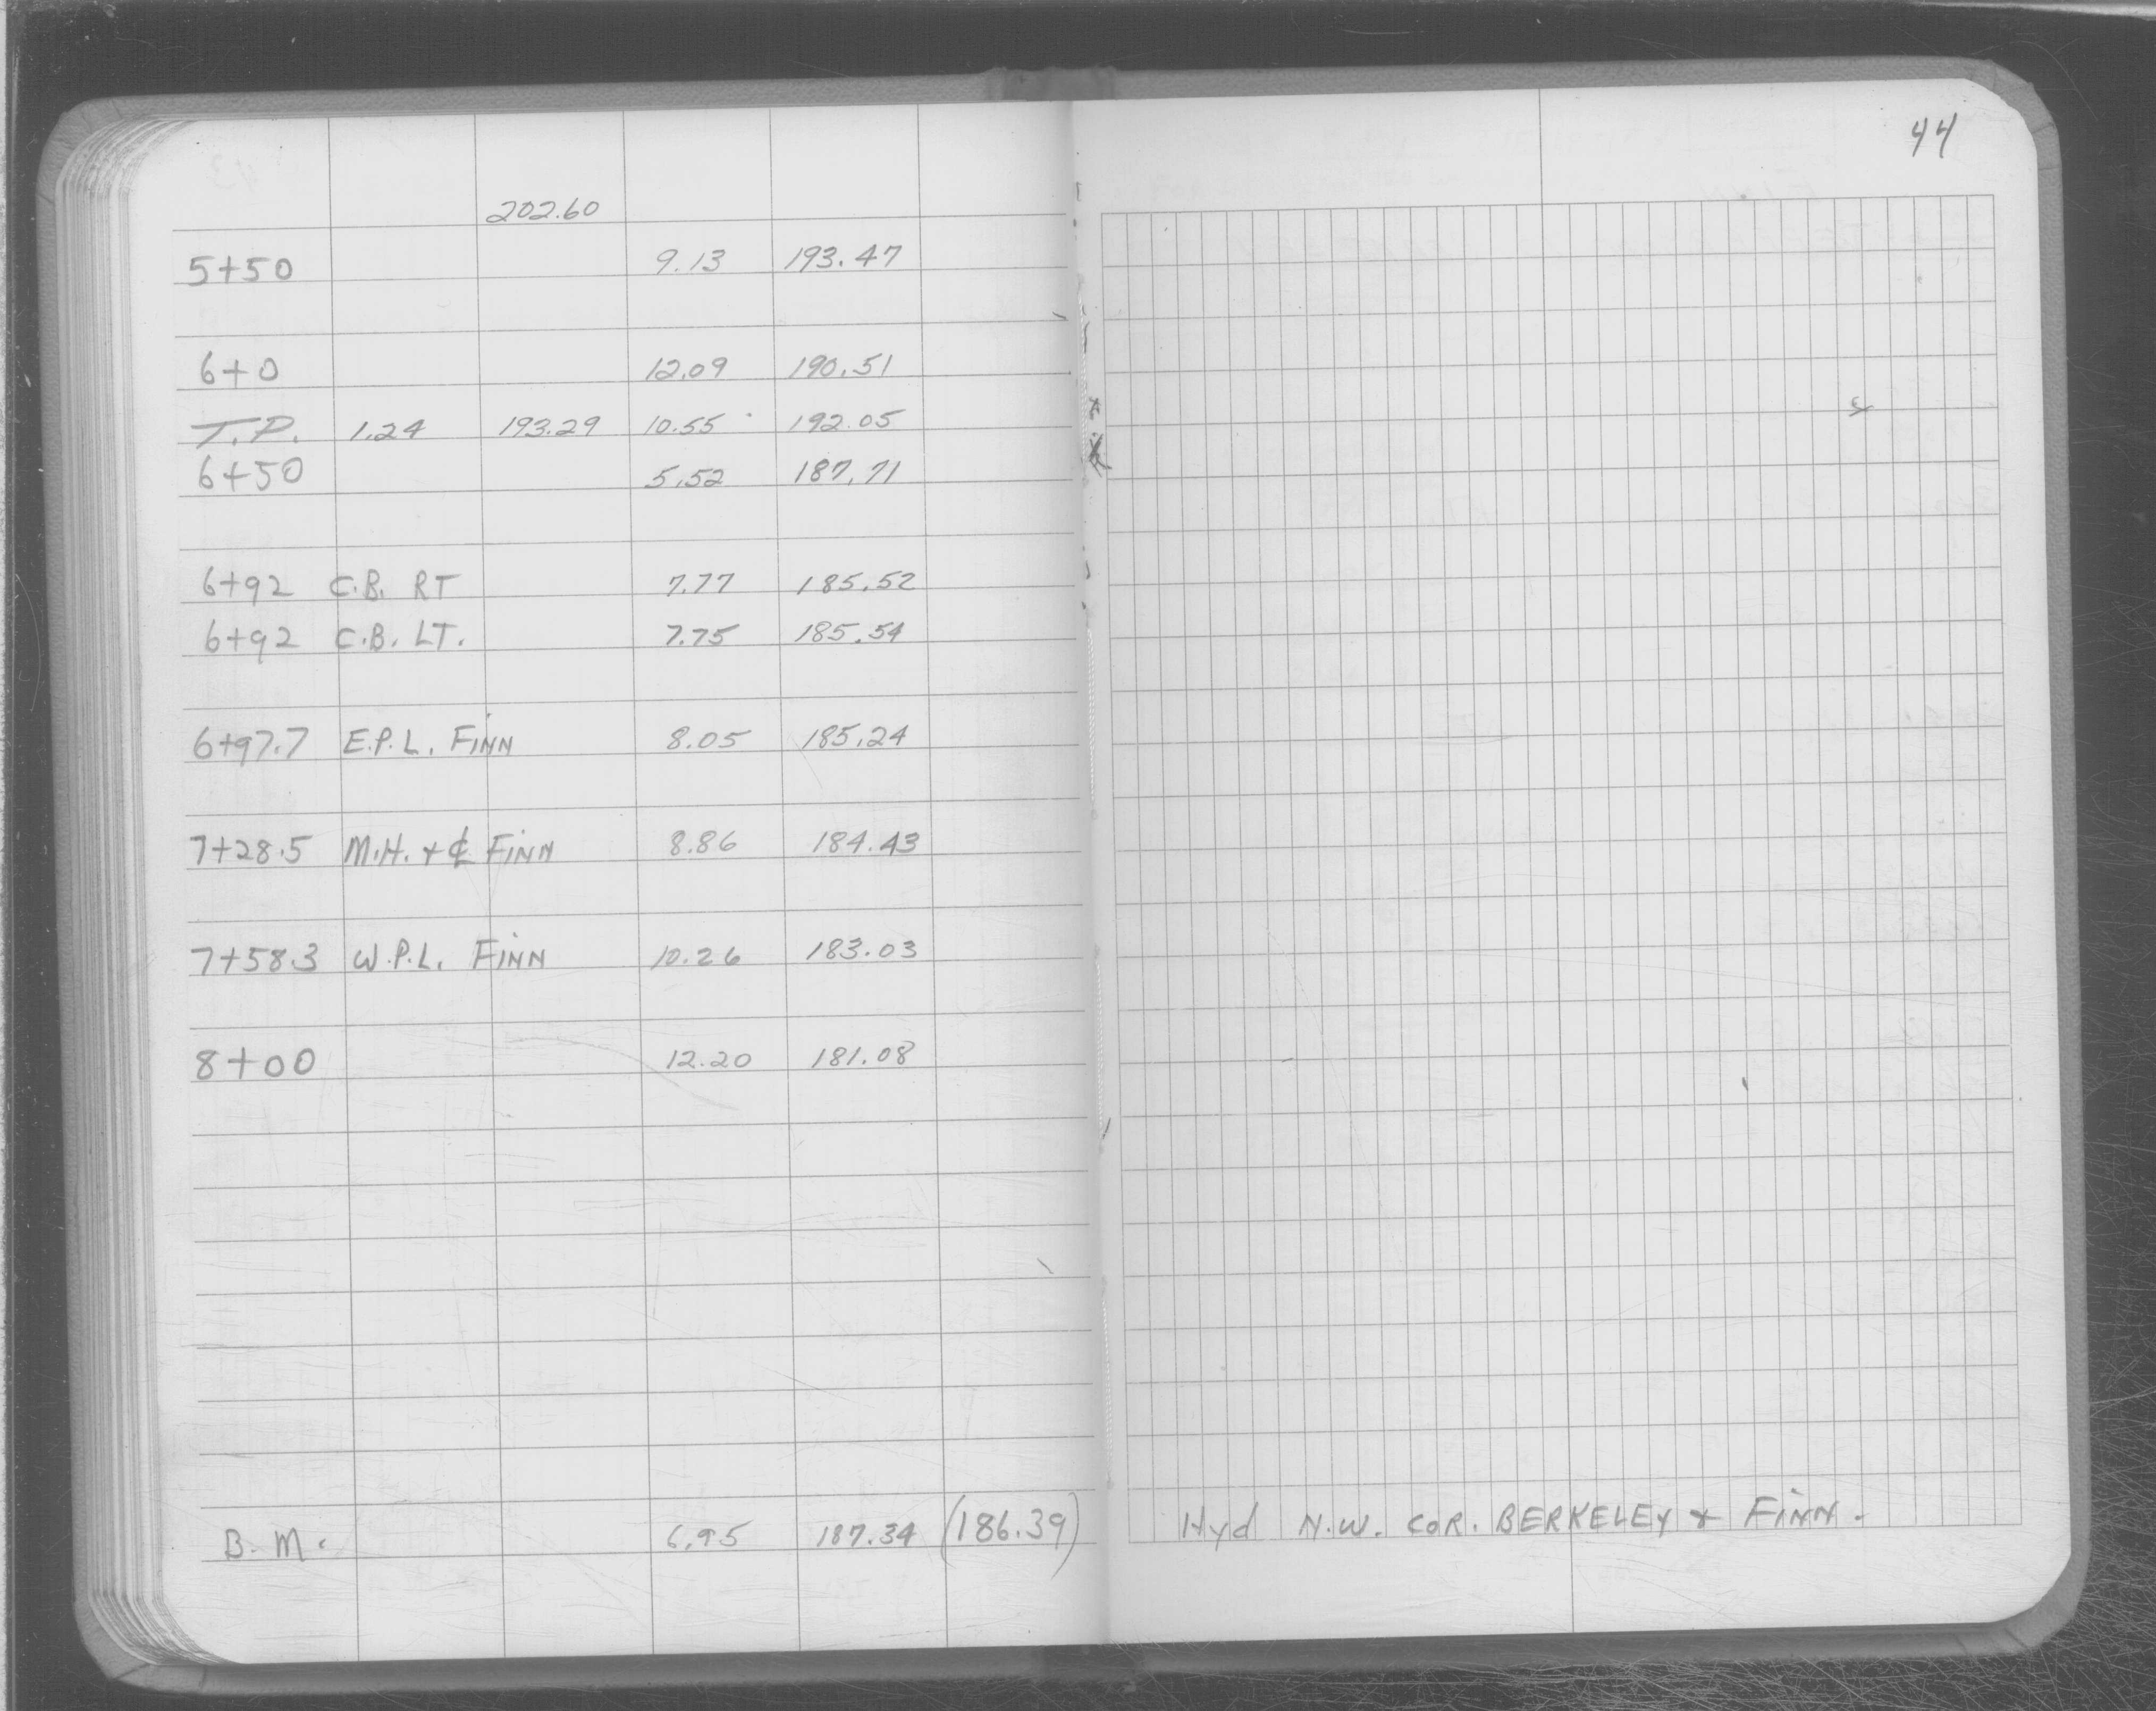 44
202.60
5+50 9.13 193.47
6+0 12.09 190.51
T.P. 1.24 193.29 10.55 192.05
6+50 5.52 187.71
6+92 C.B. RT 7.77 185.52
6+92 C.B. LT. 7.75 185.54
6+97.7 E.P.L. FINN 8.05 185.24
7+28.5 M.H. + ℄ FINN 8.86 184.43
7+58.3 W.P.L. FINN 10.26 183.03
8+00 12.20 181.08
B.M. 6.95 187.34 (186.39) Hyd N.W. COR. BERKELEY + FINN.